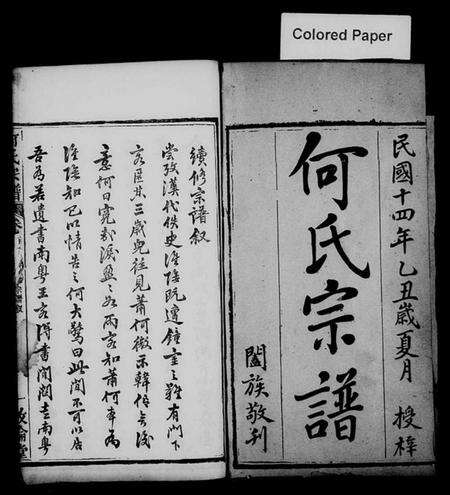 Colored Paper
民國十四年乙丑歲夏月 授梓
何氏宗譜
闔族敬刊
續修宗譜叙
嘗攷漢代佚史淮陰既遭鐘室之難有門下
客匿其三歲兒往見蕭何微示韓信無後
意何曰冤哉淚盈盈如雨客知蕭何本為
淮陰知己以情告之何大驚曰此間不可以居
吾為若遺書南粤王客得書間關走南粤